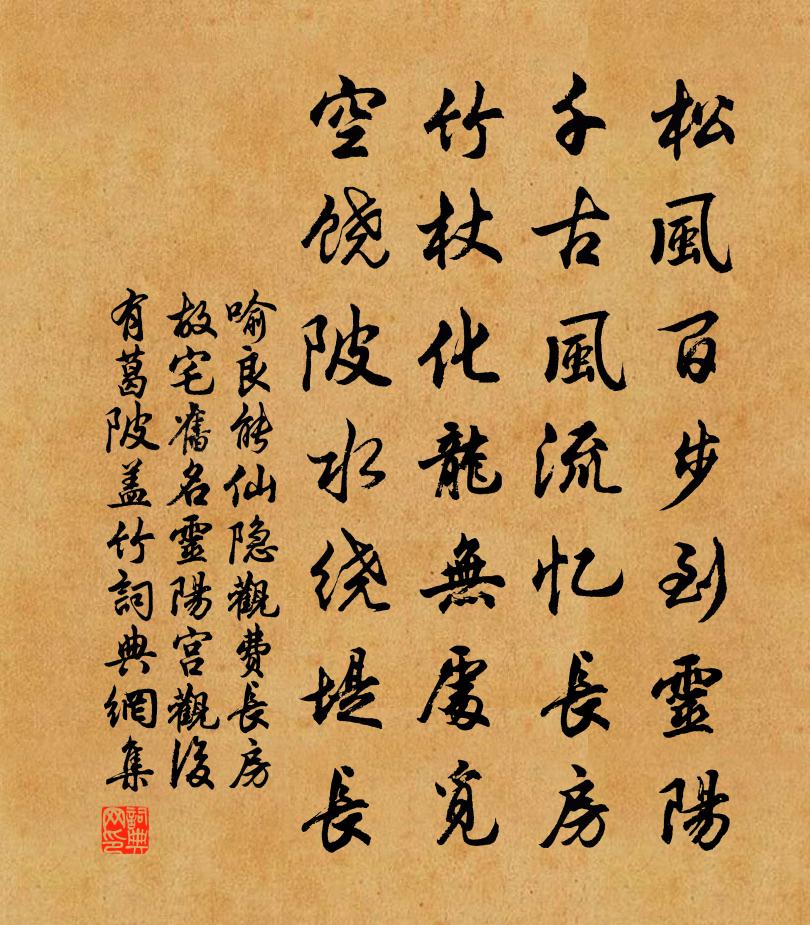 松風百步到靈陽
千古風流忆長房
竹杖化龍無處覓
空饶陂水绕堤長
喻良能仙隐觀費長房
故宅舊名靈陽宫觀後
有葛陂盖竹詞典網集
詞典网印